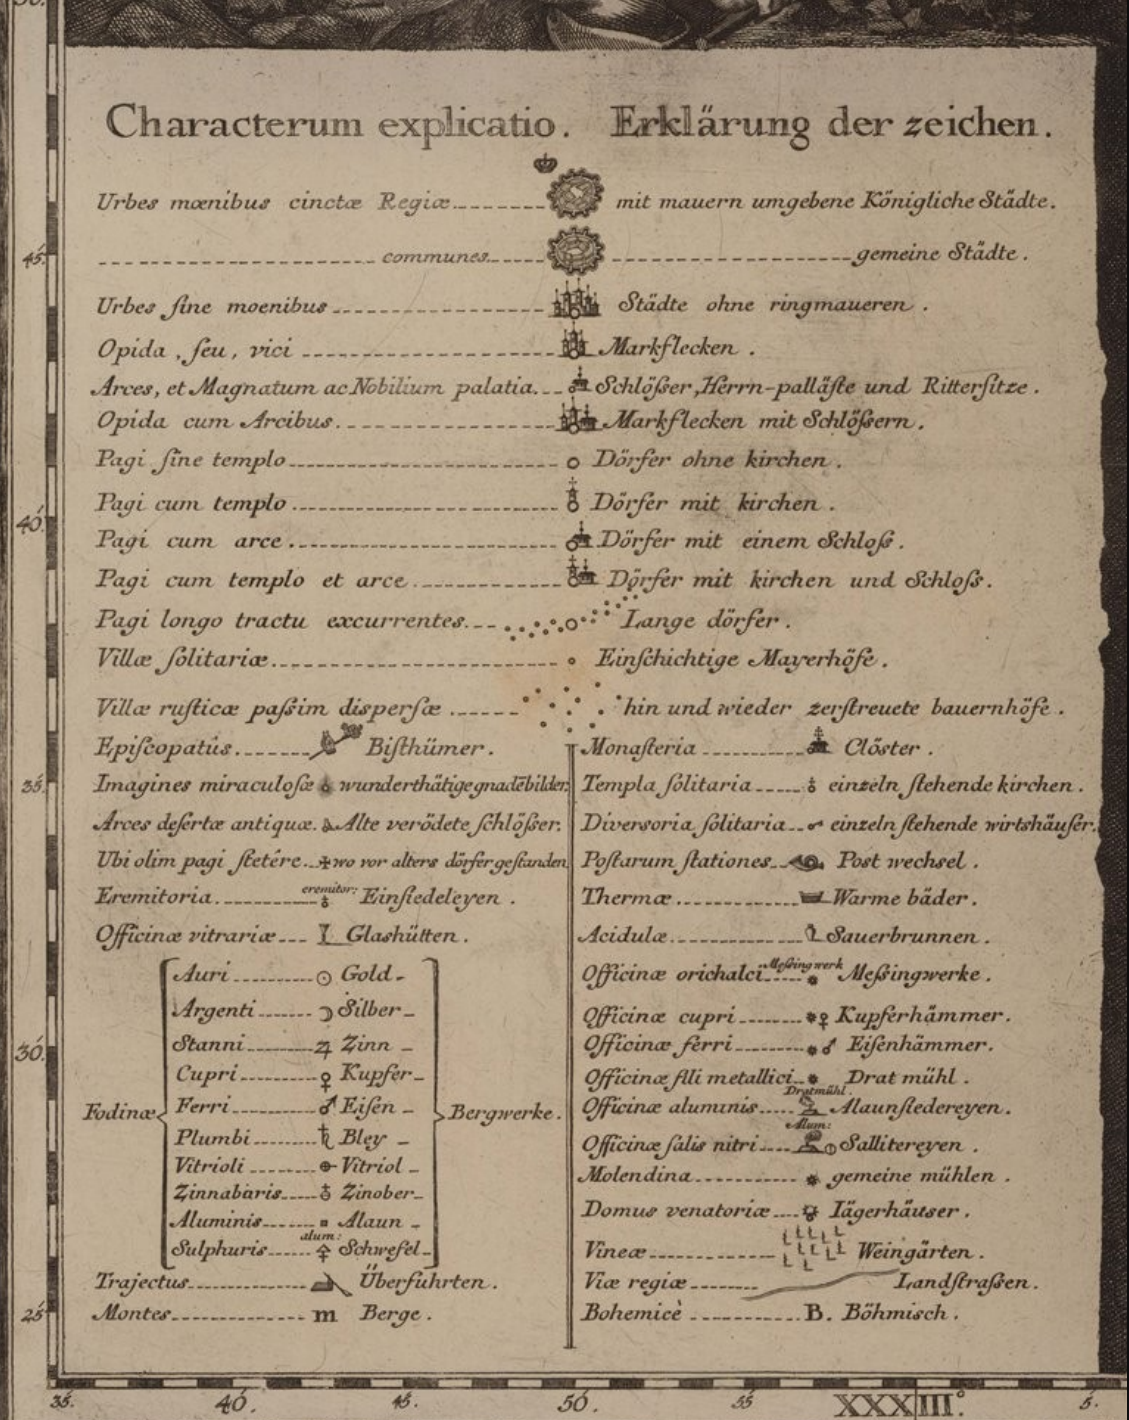 30.
Characterum explicatio. Erklärung der zeichen.
Urbes mœnibus cinctæ Regiæ mit mauern umgebene Königliche Städte.
communes gemeine Städte.
45.
Urbes ſine moenibus Städte ohne ringmaueren.
Opida, ſeu, vici Markflecken.
Arces, et Magnatum ac Nobilium palatia Schlößer, Herrn-palläſte und Ritterſitze.
Opida cum Arcibus Markflecken mit Schlößern.
Pagi ſine templo Dörfer ohne kirchen.
Pagi cum templo Dörfer mit kirchen.
40.
Pagi cum arce Dörfer mit einem Schloß.
Pagi cum templo et arce Dörfer mit kirchen und Schloſs.
Pagi longo tractu excurrentes Lange dörfer.
Villæ ſolitariæ Einſchichtige Mayerhöfe.
Villæ ruſticæ paſsim disperſæ hin und wieder zerſtreuete bauernhöfe.
Epiſcopatûs Biſthümer.
Imagines miraculoſæ wunderthätige gnadēbilder.
35.
Arces deſertæ antiquæ. Alte verödete ſchlößer.
Ubi olim pagi ſtetére wo vor alters dörfer geſtanden
Eremitoria eremitor: Einſiedeleyen.
Officinæ vitrariæ Glashütten.
Fodinæ
Auri Gold-
Argenti Silber-
Stanni Zinn-
30.
Cupri Kupfer-
Ferri Eiſen-
Plumbi Bley-
Vitrioli Vitriol-
Zinnabaris Zinober-
Aluminis Alaun-
alum:
Sulphuris Schwefel-
Bergwerke.
Trajectus Überfuhrten.
Montes m Berge.
25.
Monaſteria Clöster.
Templa ſolitaria einzeln ſtehende kirchen.
Diverſoria ſolitaria einzeln ſtehende wirtshäuſer.
Poſtarum ſtationes Post wechſel.
Thermæ Warme bäder.
Acidulæ Sauerbrunnen.
Officinæ orichalci Meſsingwerk Meſsingwerke.
Officinæ cupri Kupferhämmer.
Officinæ ferri Eiſenhämmer.
Officinæ fili metallici Drat mühl.
Dratmühl.
Officinæ aluminis Alaunſiedereyen.
Alum:
Officinæ ſalis nitri Sallitereyen.
Molendina gemeine mühlen.
Domus venatoriæ Iägerhäuser.
Vineæ Weingärten.
Viæ regiæ Landſtraſsen.
Bohemicè B. Böhmisch.
35. 40. 45. 50. 55 XXXIII° 5.